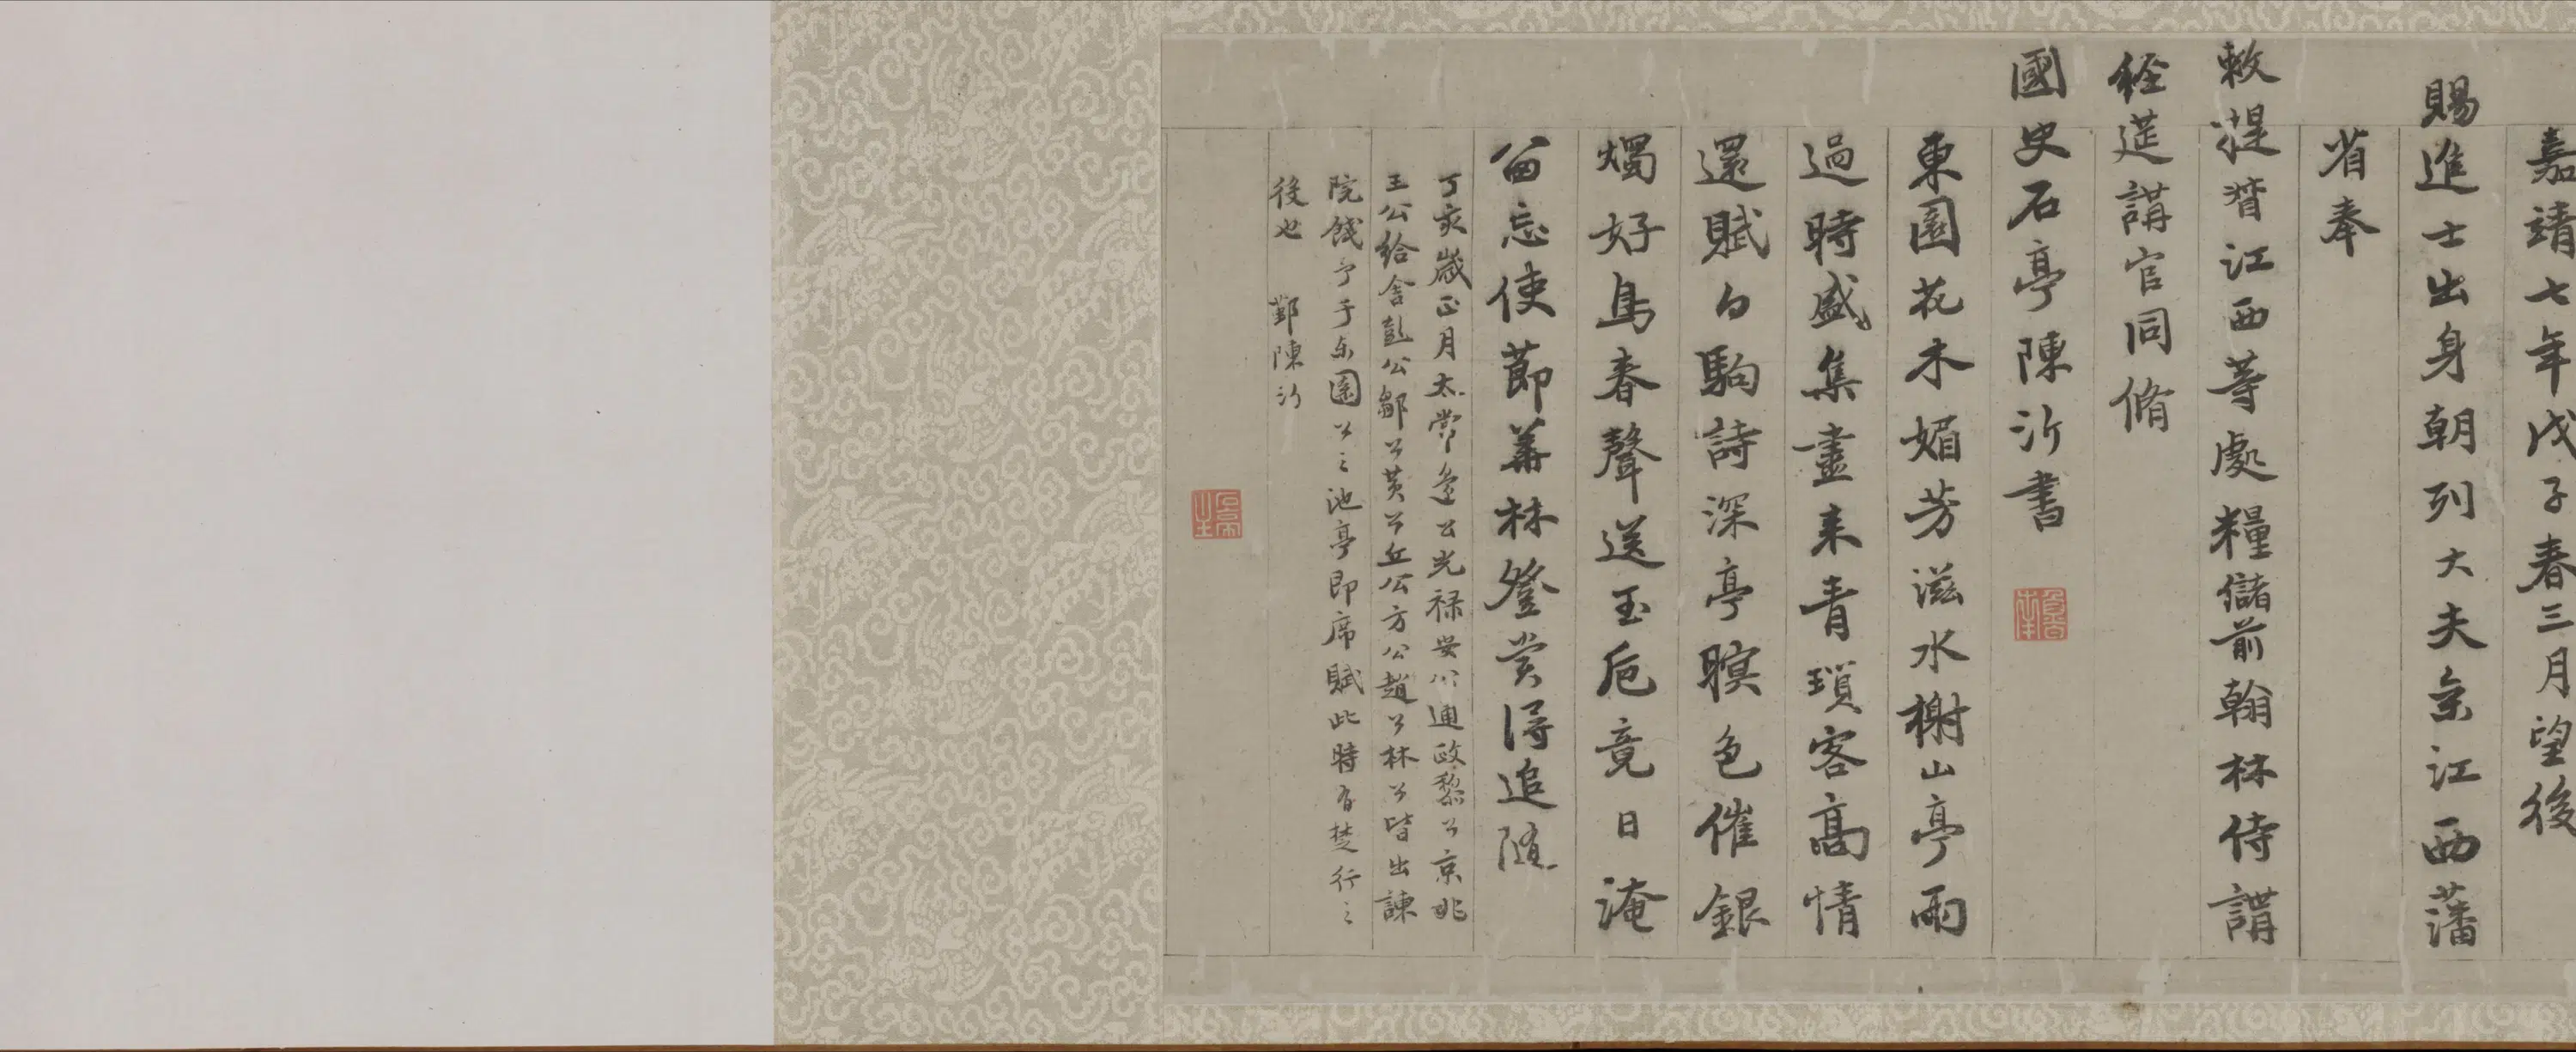 嘉靖七年戊子春三月望後
賜進士出身朝列大夫奈江西藩
省奉
敕提督江西等處糧儲前翰林侍講
經筵講官同脩
國史石亭陳沂書
東園花木媚芳滋水榭山亭雨
過時盛集盡來青瑣客高情
還賦白駒詩深亭暝色催銀
燭好鳥春聲送玉卮竟日淹
留忘使節華林登賞得追隨
丁亥歲正月太常邊公光祿安公通政黎公京兆
王公給舍彭公鄒公黃公丘公方公趙公林公皆出諫
院餞予于東園公之池亭即席賦此時有楚行之
後也 鄞陳沂